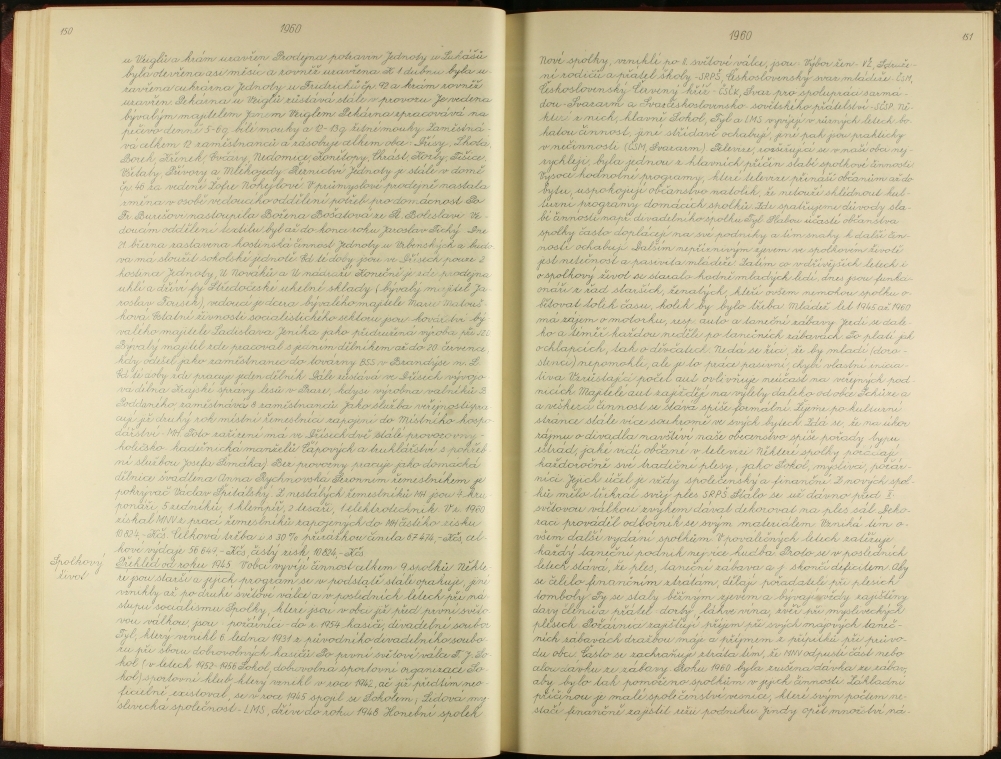 150
1960
a Veiglů a krám uzavřen Prodejna potravin Jednoty u Lukášů
byla otevřena asi měsíc a rovněž uzavřena K 1. dubnu byla u-
zavřena cukrárna Jednoty u Fridrichů čp. 42 a krám rovněž
uzavřen Pekárna u Veiglů zůstává stále v provozu Je vedena
bývalým majitelem Janem Veiglem Pekárna zpracovává na
pečivo denně 5-6 q bílé mouky a 12-13 q žitné mouky Zaměstná-
vá celkem 12 zaměstnanců a zásobuje celkem obce - Dřísy, Lhota,
Borek, Křenek, Ovčáry, Nedomice, Konětopy, Chrást, Kozly, Tišice,
Všetaty, Přívory a Mlékojedy Řeznictví Jednoty je stále v domě
čp. 46 za vedení Zofie Nohejlové V průmyslové prodejně nastala
změna v osobě vedoucího oddělení potřeb pro domácnost Po
Fr. Burešovi nastoupila Božena Bošatová ze St. Boleslavi Ve-
doucím oddělení textilu byl až do konce roku Jaroslav Tichý Dne
31. března zastavena hostinská činnost Jednoty u Vrbenských a budo-
va má sloužit sokolské jednotě Od té doby jsou ve Dřísech pouze 2
hostince Jednoty, U Nováků a U nádraží Konečně je zde prodejna
uhlí a dříví fy Středočeské uhelné sklady (bývalý majitel Ja-
roslav Fousek), vedoucí je dcera bývalého majitele Marie Matouš-
ková Ostatní živnosti socialistického sektoru jsou kovářství bý-
valého majitele Ladislava Jeníka jako přidružená výroba při JZD
Bývalý majitel zde pracoval s jedním dělníkem až do 20. července,
kdy odešel jako zaměstnanec do továrny BSS v Brandýse n. L.
Od té doby zde pracuje jeden dělník Dále zůstává ve Dřísech vývojo-
vá dílna Krajské správy lesů v Praze, kdysi výrobna valníků B.
Poddaného, zaměstnává 8 zaměstnanců Jako služba veřejnosti pra-
cují již druhý rok místní řemeslníci zapojení do Místního hospo-
dářství - MH Toto zařízení má ve Dřísech dvě stálé provozovny -
holičsko-kadeřnická manželů Čápových a truhlářství s pohřeb-
ní službou Josefa Šimáčka) Bez provozny pracuje jako domácká
dělnice švadlena Anna Rychnovská Sezonním řemeslníkem je
pokrývač Václav Špitálský Z nestálých řemeslníků MH jsou 4 kra-
ponáři, 5 zedníků, 1 klempíř, 2 tesaři, 1 elektrotechnik V r. 1960
získal MNV z prací řemeslníků zapojených do MH čistého zisku
10 824,- Kčs Celková tržba i s 30 % přirážkou činila 67 474,- Kčs, cel-
kové výdaje 56 647,- Kčs, čistý zisk 10 824,- Kčs
Spolkový
život
Přehled od roku 1945 V obci vyvíjí činnost celkem 9 spolků Někte-
ré jsou staré a jejich program se v podstatě stále opakuje, jiné
vznikly až po druhé světové válce a v posledních letech při ná-
stupu socialismu Spolky, které jsou v obci již před první světo-
vou válkou jsou požárníci - do r. 1954 hasiči, divadelní soubor
Tyl, který vznikl 6. ledna 1931 z původního divadelního soubo-
ru při sboru dobrovolných hasičů Po první světové válce T. J. So-
kol (v letech 1952-1956 Sokol, dobrovolná sportovní organizace So-
kol) sportovní klub, který vznikl v roce 1942, ač již předtím neo-
ficielně existoval, se v roce 1945 spojil se Sokolem, Lidová my-
slivecká společnost - LMS, dříve do roku 1948 Honební spolek
1960
151
Nové spolky, vzniklé po II. světové válce, jsou - Výbor žen - VŽ, Sdruže-
ní rodičů a přátel školy - SRPŠ, Československý svaz mládeže ČSM,
Československý Červený kříž - ČSČK, Svaz pro spolupráci s armá-
dou - Svazarm a Svaz československo-sovětského přátelství - SČSP. Ně-
které z nich, hlavně Sokol, Tyl a LMS vyvíjejí v různých letech bo-
hatou činnost, jiné střídavě ochabují, jiné pak jsou prakticky
v nečinnosti (ČSM, Svazarm) Televize, rozšiřující se v naší obci nej-
rychleji, byla jednou z hlavních příčin slabé spolkové činnosti
Vysoce hodnotné programy, které televize přináší občanům až do
bytu, uspokojují občanstvo natolik, že netouží shlédnout kul-
turní programy domácích spolků Zde spatřujeme důvody sla-
bé činnosti např. divadelního spolku Tyl Slabou účastí občanstva
spolky často doplácejí na své podniky a tím snahy k další čin-
nosti ochabují Dalším nepříznivým zjevem ve spolkovém životě
jest netečnost a pasivita mládeže Zatím co v dřívějších letech
o spolkový život se staralo hodně mladých lidí, dnes jsou funkci-
onáři z řad starších, ženatých, kteří ovšem nemohou spolku o-
bětovat tolik času, kolik by bylo třeba Mládež let 1945 až 1960
má zájem o motorku, resp. auto a taneční zábavy Jezdí se dale-
ko a téměř každou neděli po tanečních zábavách To platí jak
o chlapcích, tak o děvčatech Nedá se říci, že by mladí (doro-
stenci) nepomohli, ale je to práce pasivní, chybí vlastní inicia-
tiva Vzrůstající počet aut ovlivňuje neúčast na veřejných pod-
nicích Majitelé aut zajíždějí na výlety daleko od obce Schůze a
a veškerá činnost se stává spíše formální Žijeme po kulturní
stránce stále více soukromě ve svých bytech Zdá se, že na úkor
zájmu o divadla navštíví naše obecenstvo spíše pořady typu
estrád, jaké vidí občané v televizi Některé spolky pořádají
každoročně své tradiční plesy, jako Sokol, myslivci, požár-
níci Jejich účel je vždy společenský a finanční Z nových spol-
ků mělo třikrát svůj ples SRPŠ Stalo se již dávno před II.
světovou válkou zvykem dávat dekorovat na ples sál Deko-
raci prováděl odborník se svým materiálem Vzniká tím o-
všem další vydání spolkům V poválečných letech zatěžuje
každý taneční podnik nejvíce hudba Proto se v posledních
letech stává, že ples, taneční zábava a j. skončí deficitem Aby
se čelilo finančním ztrátám, dělají pořadatelé při plesích
tomboly Ty se staly běžným zjevem a bývají vždy zajištěny
dary členů a přátel - dorty, láhve vína, zvěř při mysliveckých
plesech Požárníci zajišťují příjem při svých májových taneč-
ních zábavách dražbou máje a příjmem z příspěvků při průvo-
du obcí Často se zachraňuje ztráta tím, že MNV odpustí část nebo
celou dávku ze zábavy Roku 1960 byla zrušena dávka ze zábav,
aby bylo tak pomoženo spolkům v jejich činnosti Základní
příčinou je malé společenství vesnice, které svým počtem ne-
stačí finančně zajistit režii podniku Jindy opět množství ná-